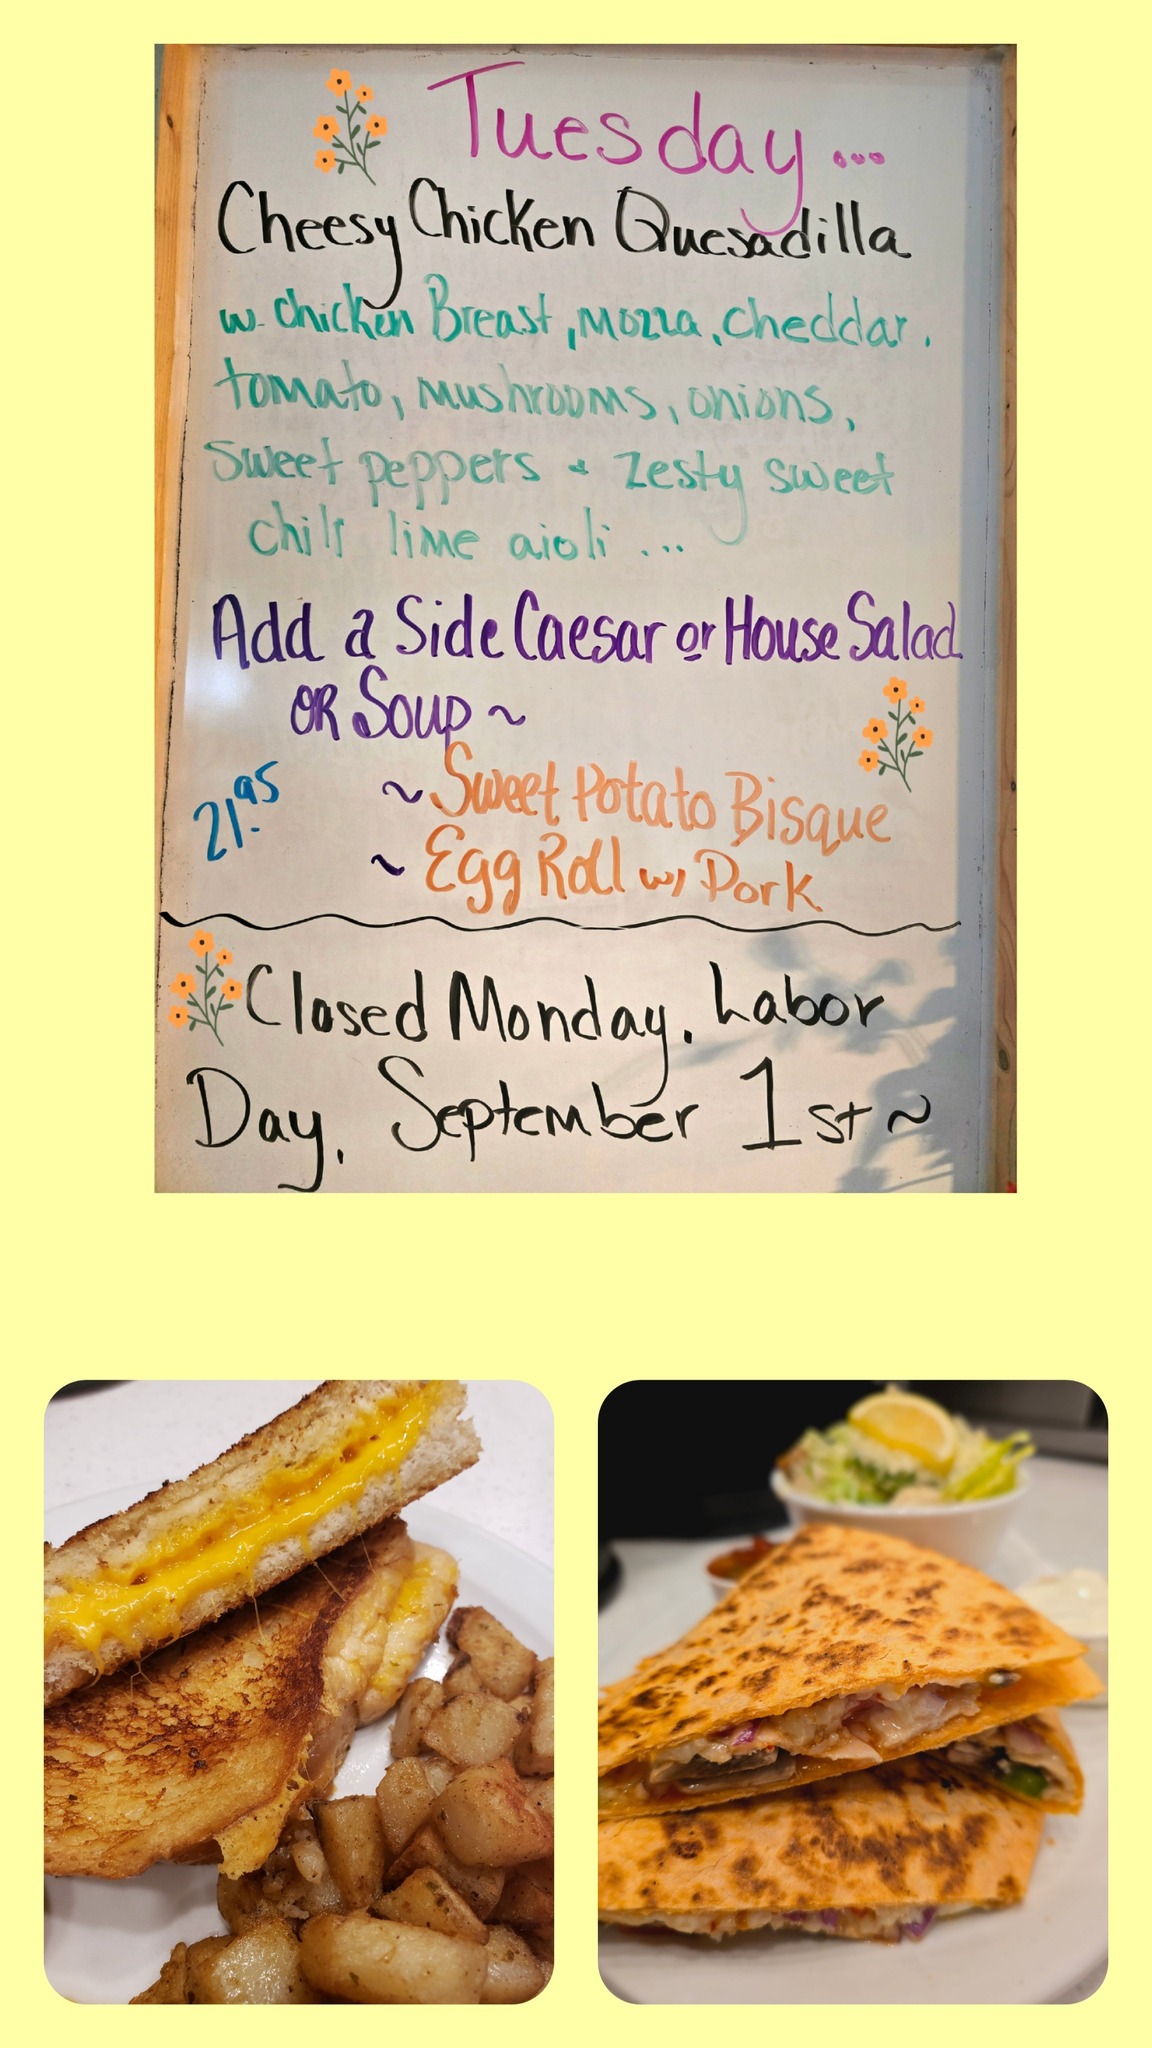 Tuesday...
Cheesy Chicken Quesadilla
w. chicken Breast, mozza, cheddar,
tomato, mushrooms, onions,
sweet peppers + zesty sweet
chili lime aioli ...
Add a Side Caesar or House Salad
OR Soup ~
21.95
~ Sweet Potato Bisque
~ Egg Roll w/ Pork
Closed Monday, Labor
Day, September 1st ~